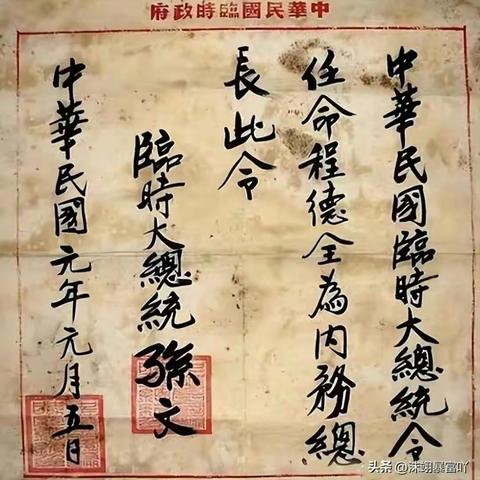 中華民國臨時政府
中華民國臨時大總統令
任命程德全為内務總
長此令
臨時大總統孫文
中華民國元年元月五日
头条 @沫翊暴富吖